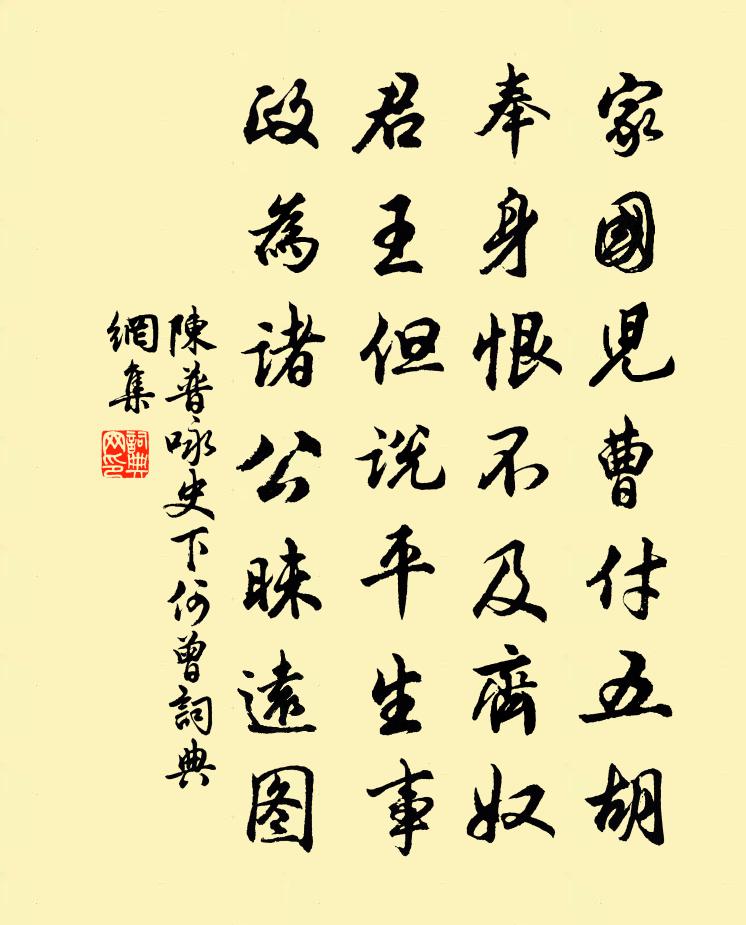 家國兒曹付五胡
奉身恨不及齊奴
君王但説平生事
政為諸公昧遠图
陳普咏史下何曾詞典
網集
詞典
网印